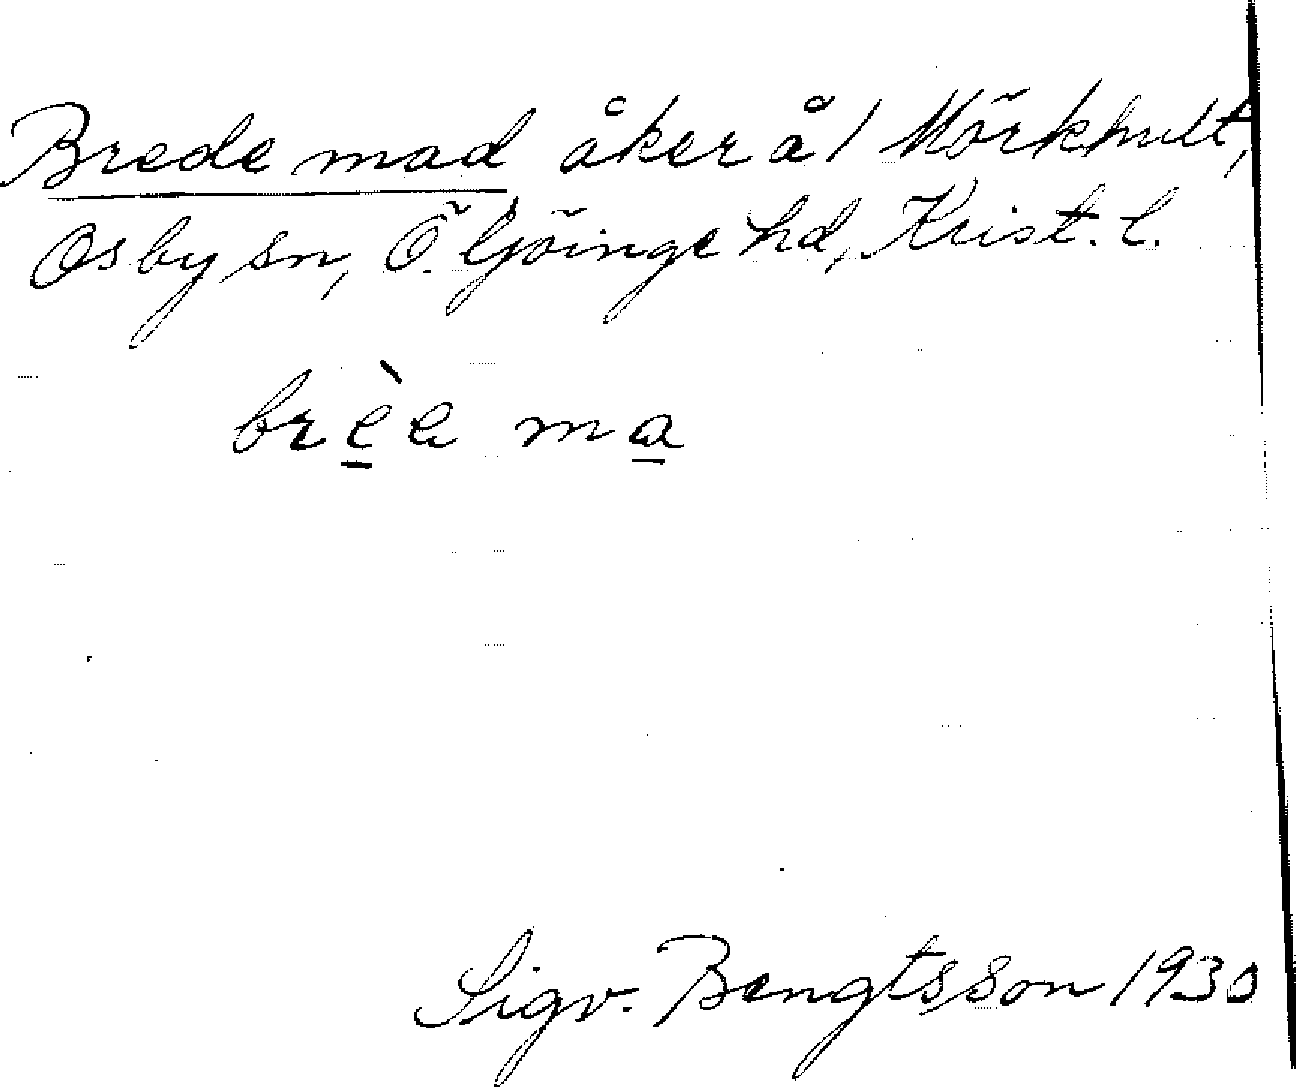 Brede mad åker å 1 Mörkhult,
Osby sn, Ö. Göinge hd, Krist. l.
brèe ma
Sigv. Bengtsson 1930